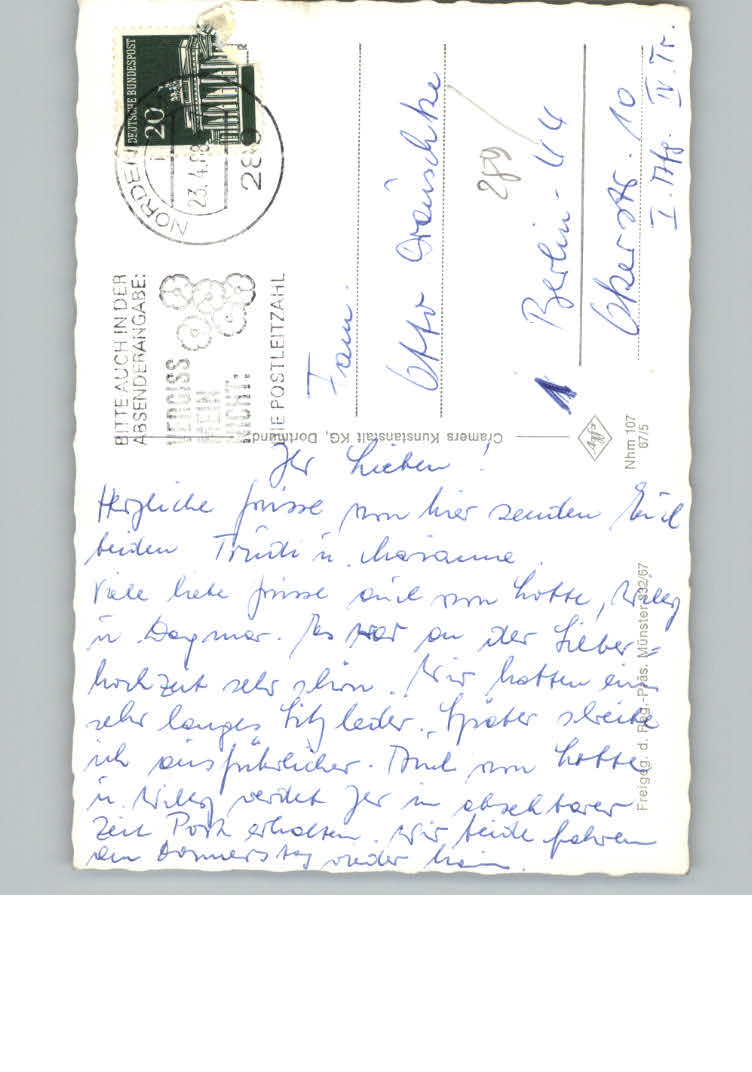 DEUTSCHE BUNDESPOST
20
NORDEN
23.4.68
289
BITTE AUCH IN DER
ABSENDERANGABE:
VERGISS
MEIN
NICHT:
DIE POSTLEITZAHL
Fam.
Otto
289
1 Berlin-44
Okerstr. 10
I. Afg. IV. Tr.
Cramers Kunstanstalt KG, Dortmund
Nhm 107
67/5
Freigeg. d. Reg.-Präs. Münster 932/67
Ihr Lieben!
Herzliche Grüsse von hier senden Euch
beiden Trudi u.
Viele liebe Grüsse auch von Lotte, Willy
u. Dagmar. Es war an der Silber=
hochzeit sehr schön. Wir hatten ein
sehr langes Sitzleder. Später schreibe
ich ausführlicher. Auch von Lotte
u. Willy werdet Ihr in absehbarer
Zeit Post erhalten. Wir beide fahren
am Donnerstag wieder heim.